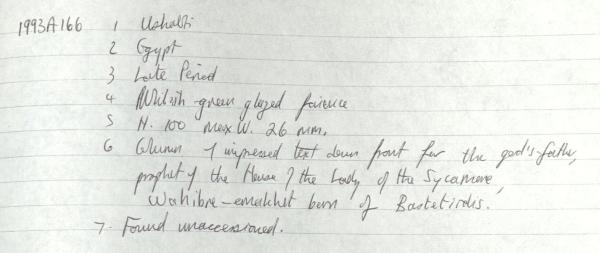 1993A166 1 Ushabti
2 Egypt
3 Late Period
4 Whitish-green glazed faience
5 H. 100 max W. 26 mm.
6 Column of impressed text down front for the god's-father,
prophet of the House of the Lady of the Sycamore,
Wahibre-emakhet born of Bastetirdis.
7. Found unaccessioned.